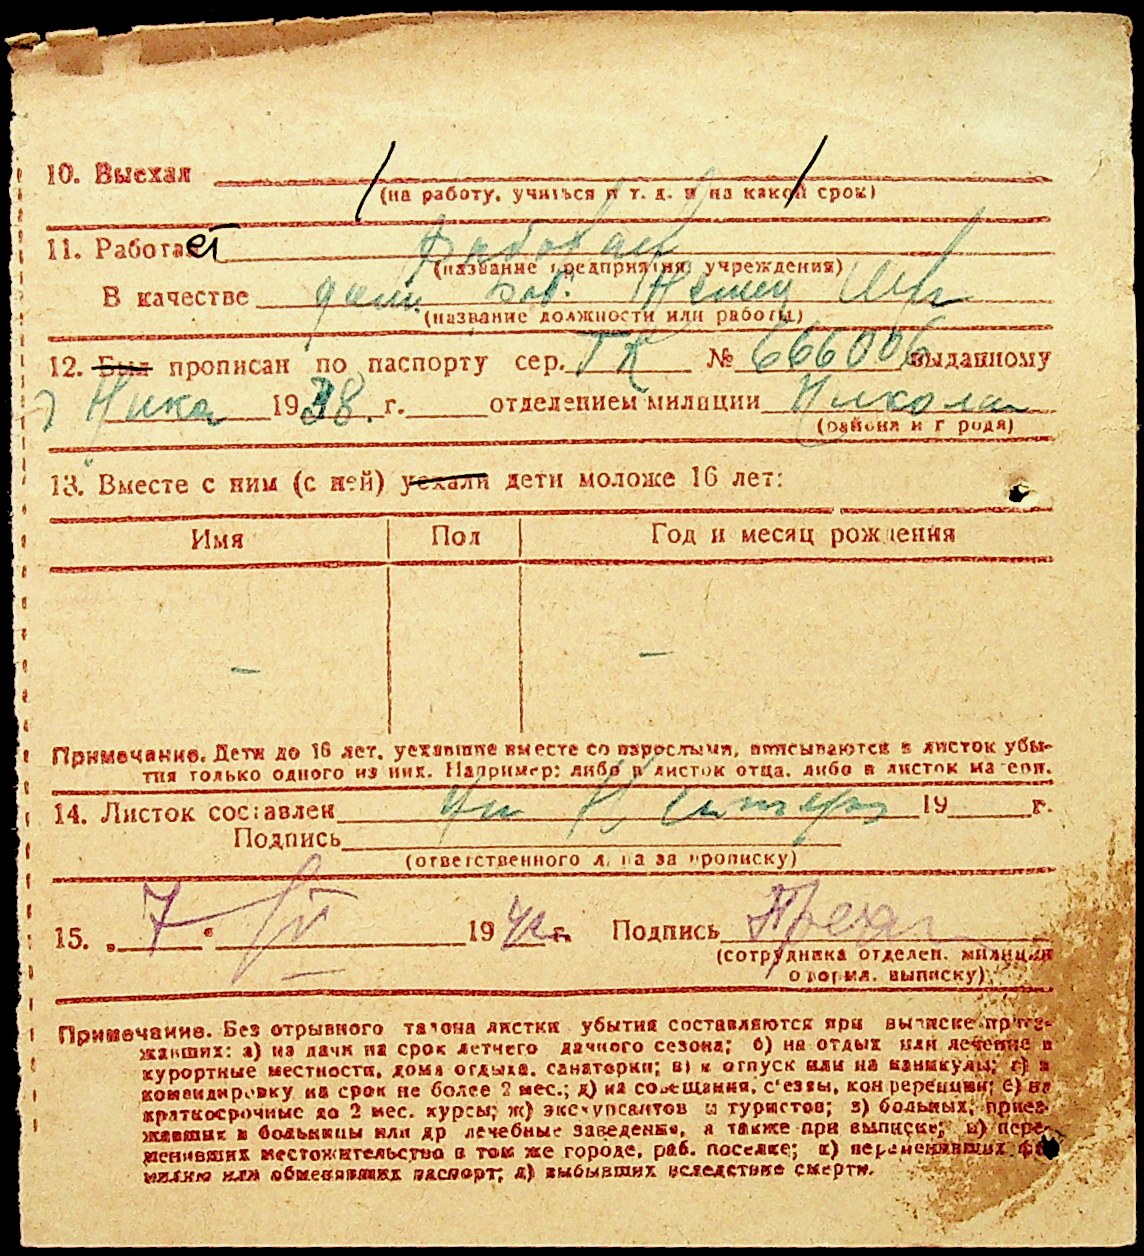 10. Выехал
(на работу, учиться и т. д. и на какой срок)
11. Работает
(название предприятия, учреждения)
В качестве раб.
(название должности или работы)
12. Был прописан по паспорту сер. ТК № 666006 выданному
1938 г. отделением милиции
(района и города)
13. Вместе с ним (с ней) уехали дети моложе 16 лет:
Имя Пол Год и месяц рождения
— —
Примечание. Дети до 16 лет, уехавшие вместе со взрослыми, вписываются в листок убы-
тия только одного из них. Например: либо в листок отца, либо в листок матери.
14. Листок составлен 19 г.
Подпись
(ответственного лица за прописку)
15. „7“ 19 г. Подпись
(сотрудника отделен. милиции
оформл. выписку)
Примечание. Без отрывного талона листки убытия составляются при выписке приез-
жавших: а) на дачи на срок летнего дачного сезона; б) на отдых или лечение в
курортные местности, дома отдыха, санатории; в) в отпуск или на каникулы; г) в
командировку на срок не более 2 мес.; д) на совещания, с'езды, конференции; е) на
краткосрочные до 2 мес. курсы; ж) экскурсантов и туристов; з) больных, приез-
жавших в больницы или др лечебные заведения, а также при выписке; и) пере-
менивших местожительство в том же городе, раб. поселке; к) переменивших фа-
милию или обменявших паспорт; л) выбывших вследствие смерти.